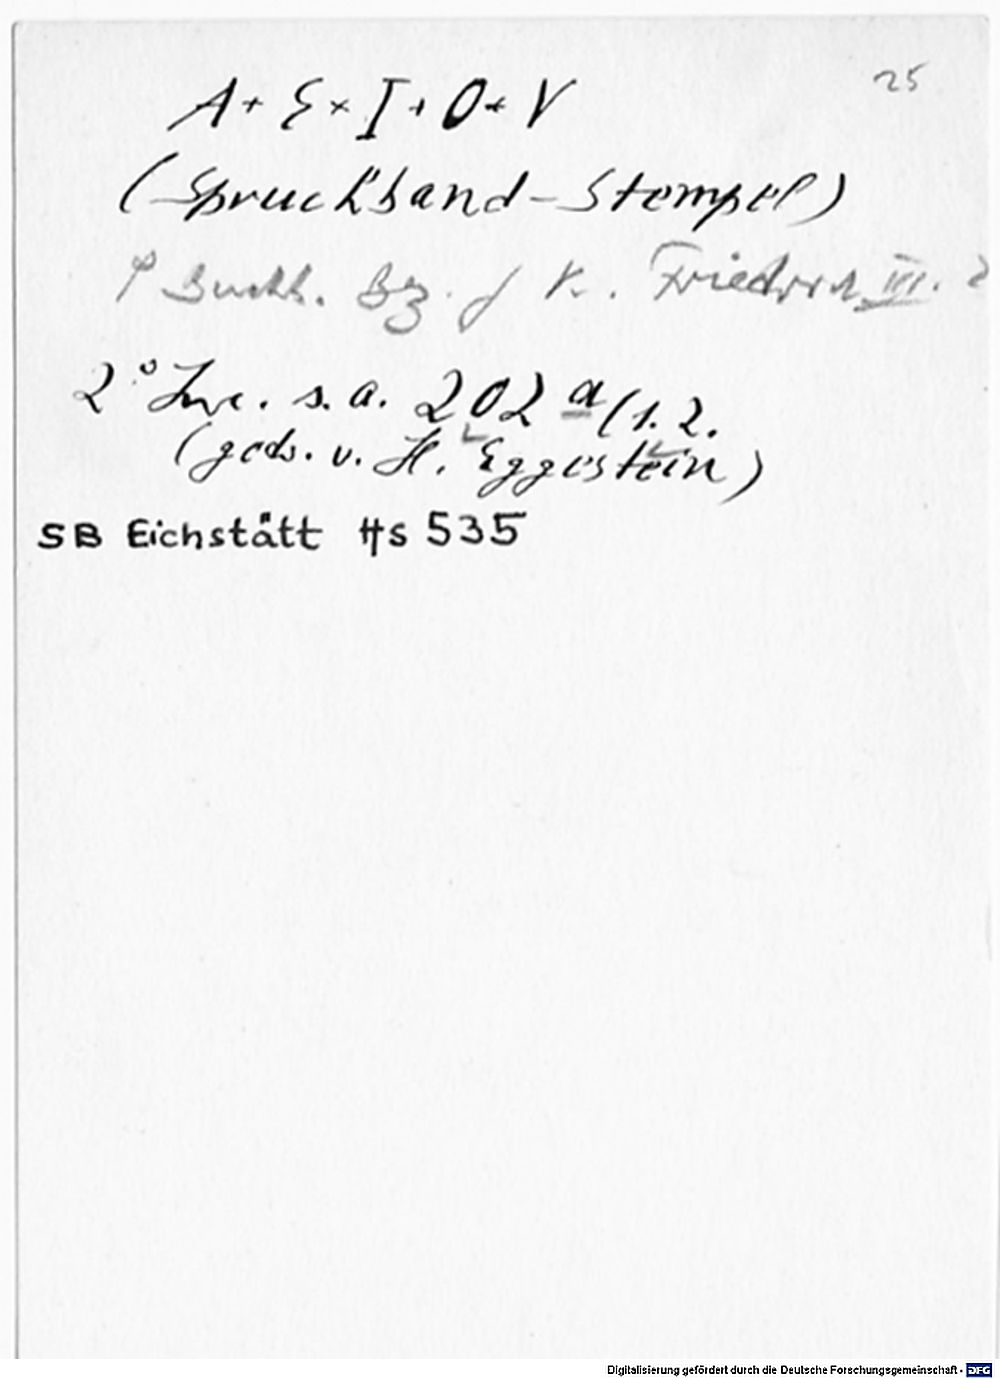 25
A + E + I + O + V
(Spruchband-Stempel)
Buchb. Bz. f K. Friedrich III. ?
2° Inc. s. a. 202 a (1. 2.
(gedr. v. H. Eggestein)
SB Eichstätt Hs 535
Digitalisierung gefördert durch die Deutsche Forschungsgemeinschaft - DFG